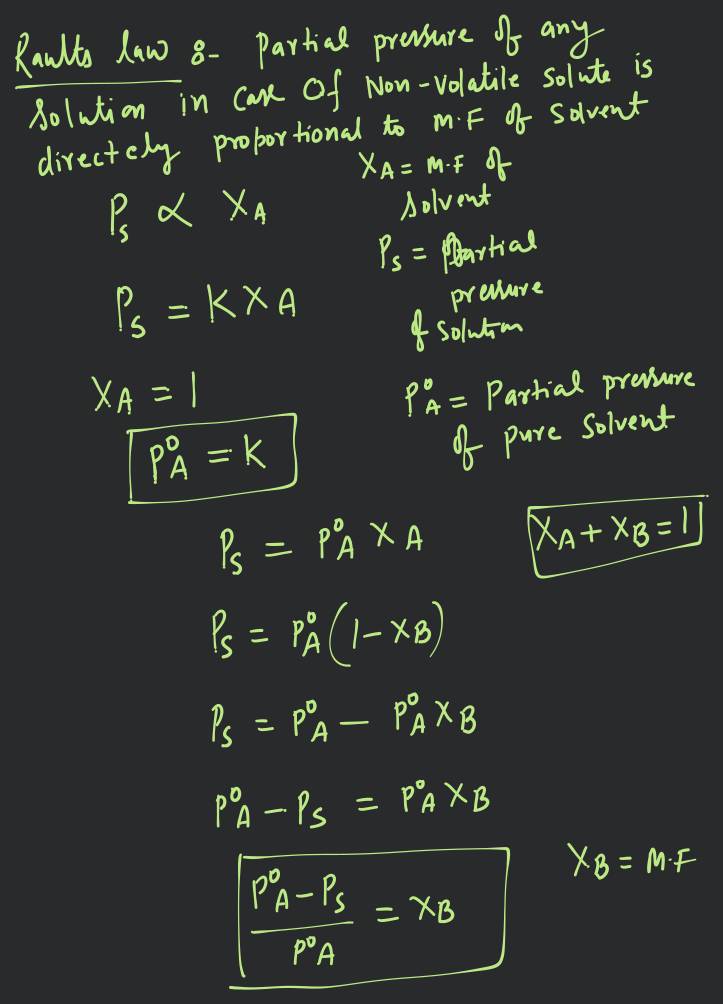 Raults law :- Partial pressure of any
Solution in case Of Non-Volatile Solute is
directely proportional to M.F of Solvent
P_s ∝ X_A
X_A = M.F of
Solvent
P_s = Partial
pressure
of Solution
P_s = K X_A
X_A = 1
P°_A = K
P°_A = Partial pressure
of pure Solvent
P_s = P°_A X_A
X_A + X_B = 1
P_s = P°_A (1 - X_B)
P_s = P°_A - P°_A X_B
P°_A - P_s = P°_A X_B
(P°_A - P_s) / P°_A = X_B
X_B = M.F